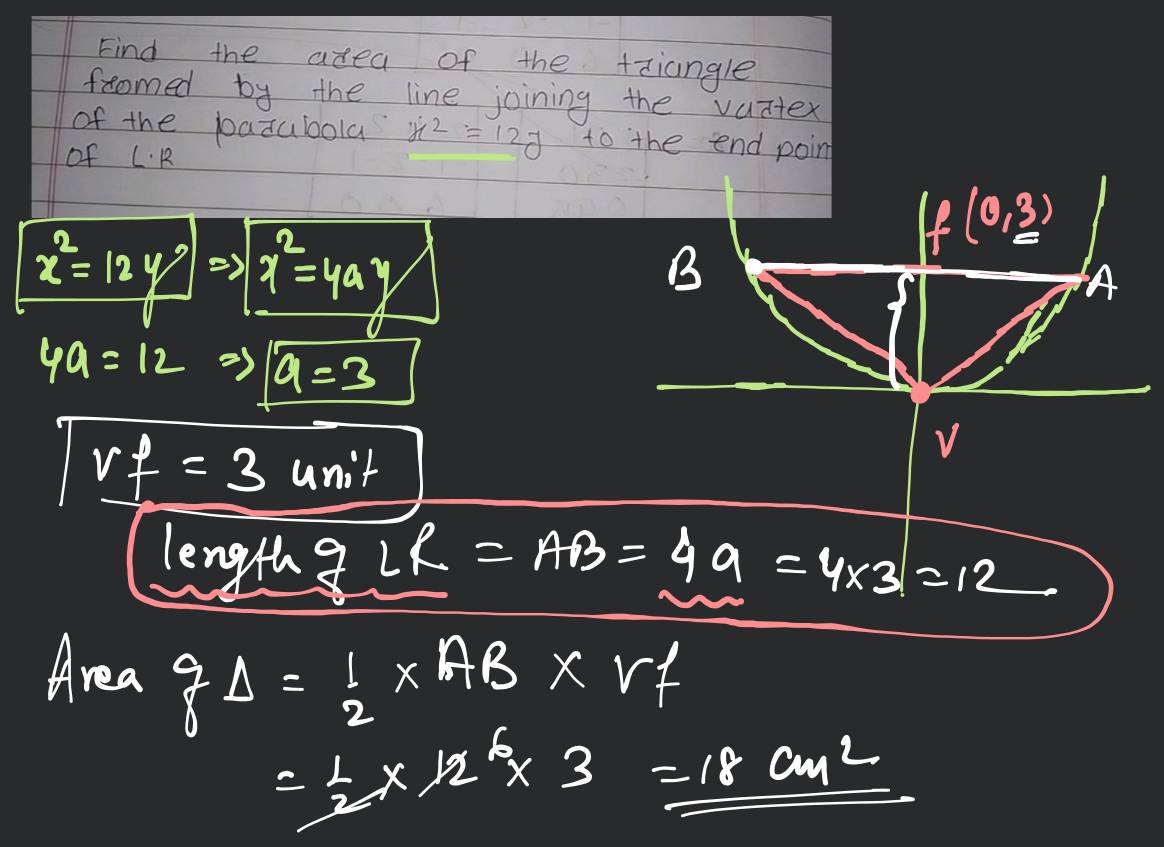 Find the area of the triangle
fromed by the line joining the vartex
of the parabola x² = 12y to the end poin
of L.R
x² = 12y => x² = 4ay
4a = 12 => a = 3
f(0,3)
B
A
V
Vf = 3 unit
length of LR = AB = 4a = 4x3 = 12
Area of Δ = 1/2 x AB x Vf
= 1/2 x 12 6 x 3 = 18 cm²